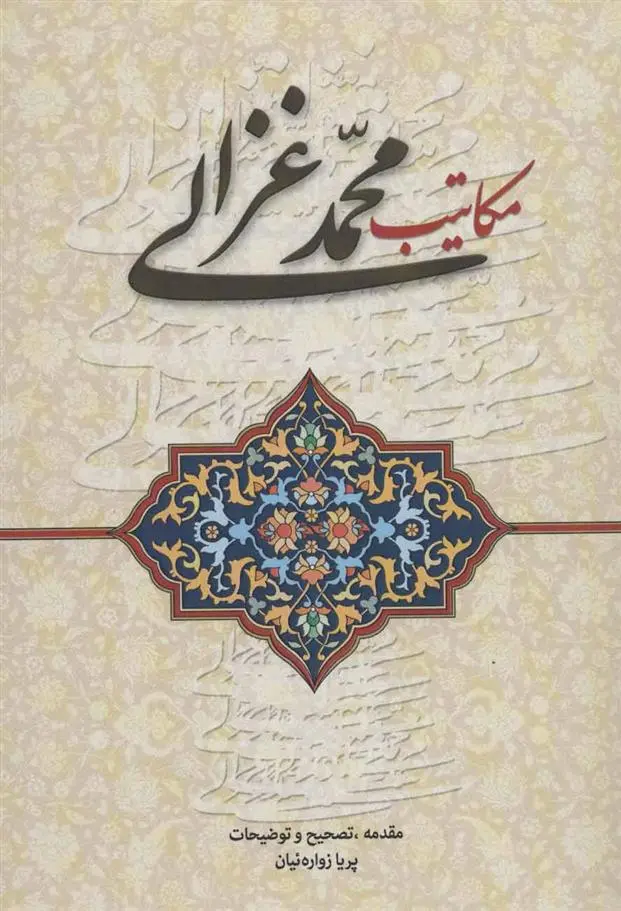 مکاتیب محمّد غزالی
مقدمه ،تصحیح و توضیحات
پریا زواره‌ئیان